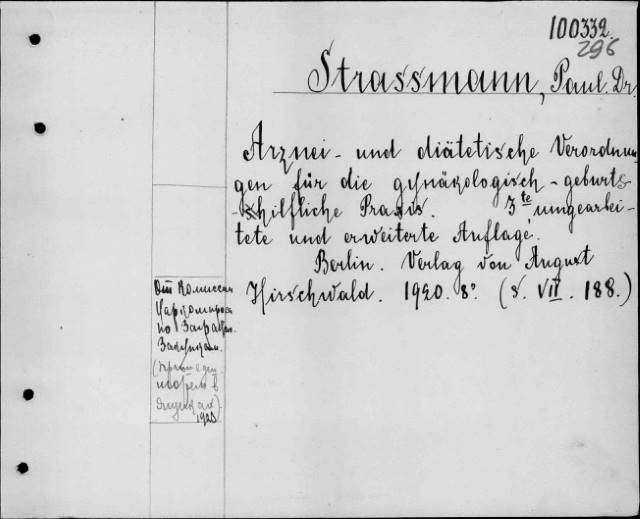 100332.
296
Strassmann, Paul. Dr.
Arznei- und diätetische Verordnun-
gen für die gynäkologisch-geburts-
-hilfliche Praxis. 3te umgearbei-
tete und erweiterte Auflage.
Berlin. Verlag von August
Hirschwald. 1920. 8° (S. VII. 188.)
От Комиссии
Наркомпроса
по Заграничн.
Закупкам.
1923